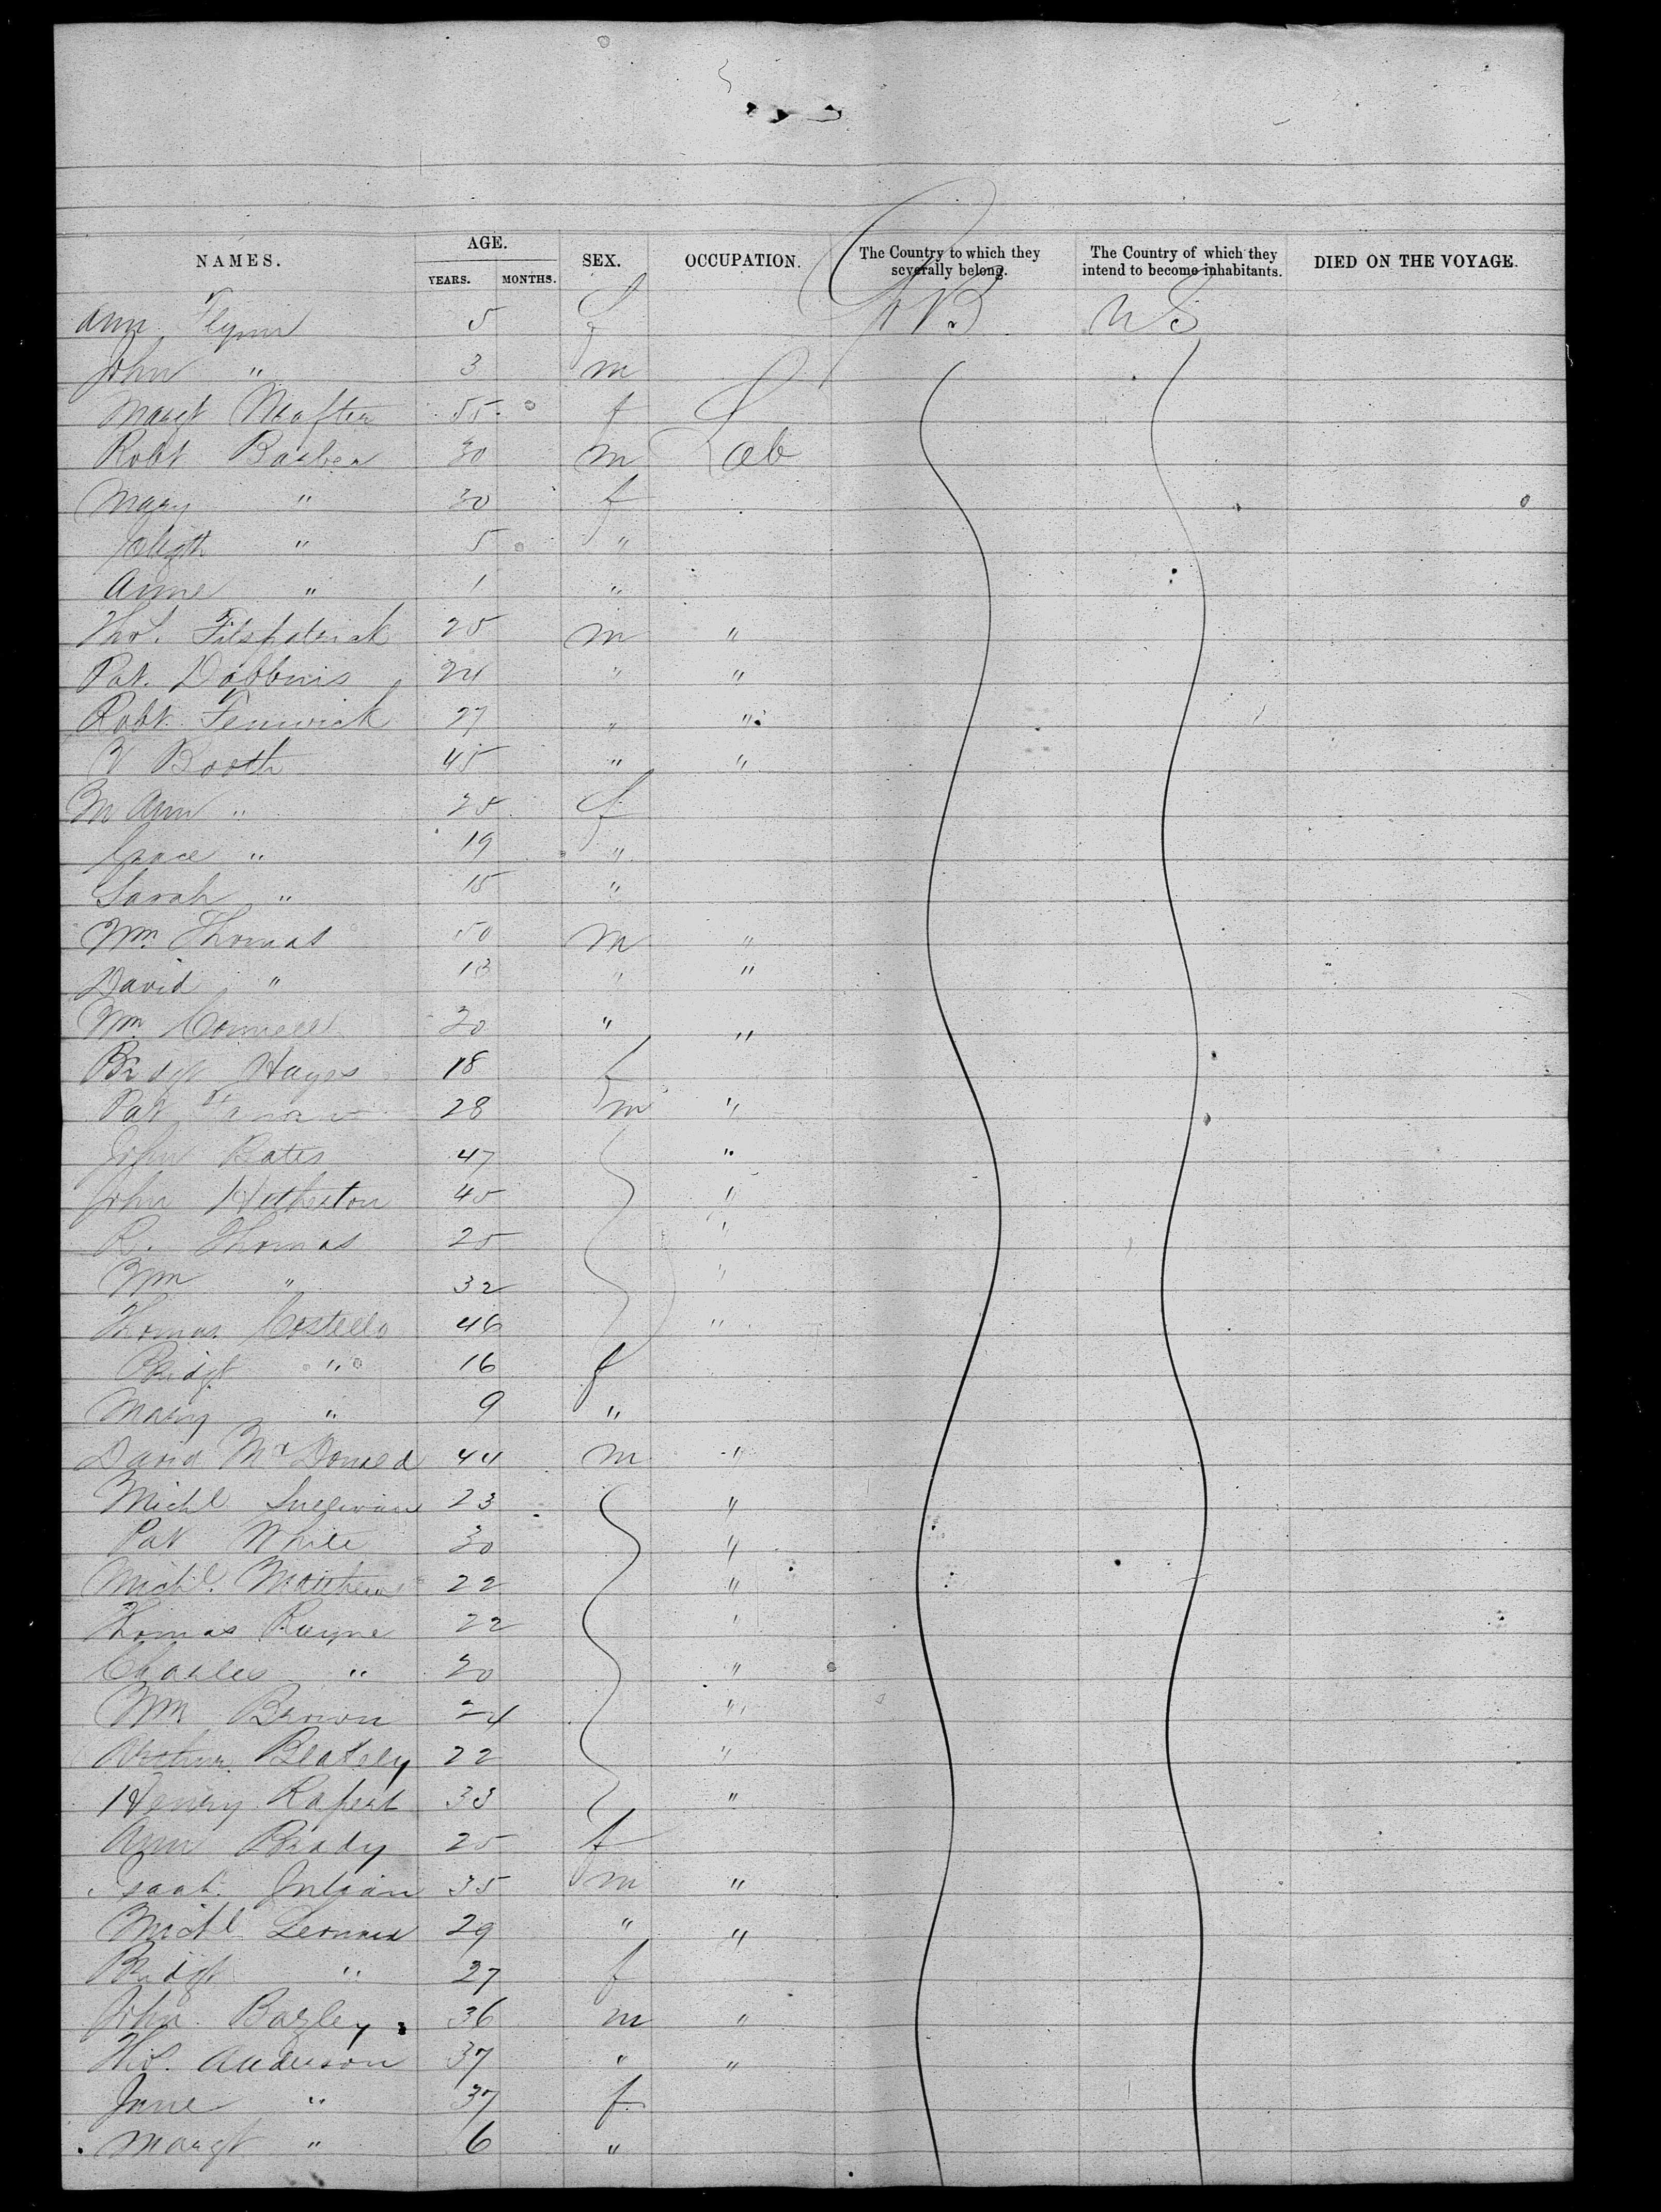 NAMES. AGE. YEARS. MONTHS. SEX. OCCUPATION. The Country to which they severally belong. The Country of which they intend to become inhabitants. DIED ON THE VOYAGE.
Ann Flynn 5 f GB US
John " 3 m
Margt 55 f
Robt Barber 30 m Lab
Mary " 30 f
Elizth " 5 "
Anne " 1 "
Thos. Fitspatrick 25 m "
Pat. Dobbins 24 " "
Robt. Fenwick 27 " "
Booth 45 " "
M Ann " 25 f
Grace " 19 "
Sarah " 15 "
Wm Thomas 50 m "
David " 13 " "
Wm Connell 20 " "
Bridgt Hayes 18 f
Pat 28 m "
John Bates 47 "
John Hetherton 45 "
R. Thomas 25 "
Wm " 32 "
Thomas Costello 46 "
Bridgt " 16 f
Mary " 9 "
David McDonald 44 m "
Michl Sullivan 23 "
Pat White 30 "
Michl. Matthews 22 "
Thomas Rayne 22 "
Charles " 20 "
Wm Brown 24 "
Arthur Blakely 22 "
Henry Rapert 33 "
Ann Brady 25 f
Isaak Julian 35 m "
Michl Leonard 29 " "
Bridgt " 27 f
John Bagley 36 m "
Thos. Anderson 37 " "
Jane " 37 f
Margt " 6 "